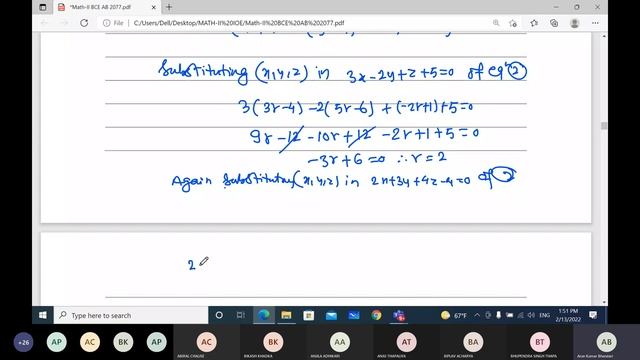 *Math-II BCE AB 2077.pdf
File | C:/Users/Dell/Desktop/MATH-II%20IOE/Math-II%20BCE%20AB%202077.pdf
Substituting (x,y,z) in 3x-2y+z+5=0 of eqn (2)
3(3r-4) -2(5r-6) +(-2r+1)+5=0
9r-12 -10r+12 -2r+1+5=0
-3r+6=0 ∴ r=2
Again substituting (x,y,z) in 2x+3y+4z-4=0 of (2)
2
Type here to search
67°F
ENG
1:51 PM
2/13/2022
+26
AP
AC
BK
AP
AC
BK
AA
AT
BA
BT
AB
ABIRAL CHALISE
BIKASH KHADKA
ANJILA ADHIKARI
ANAS THAPALIYA
BIPLAV ACHARYA
BHUPENDRA SINGH THAPA
Arun Kumar Bhandari